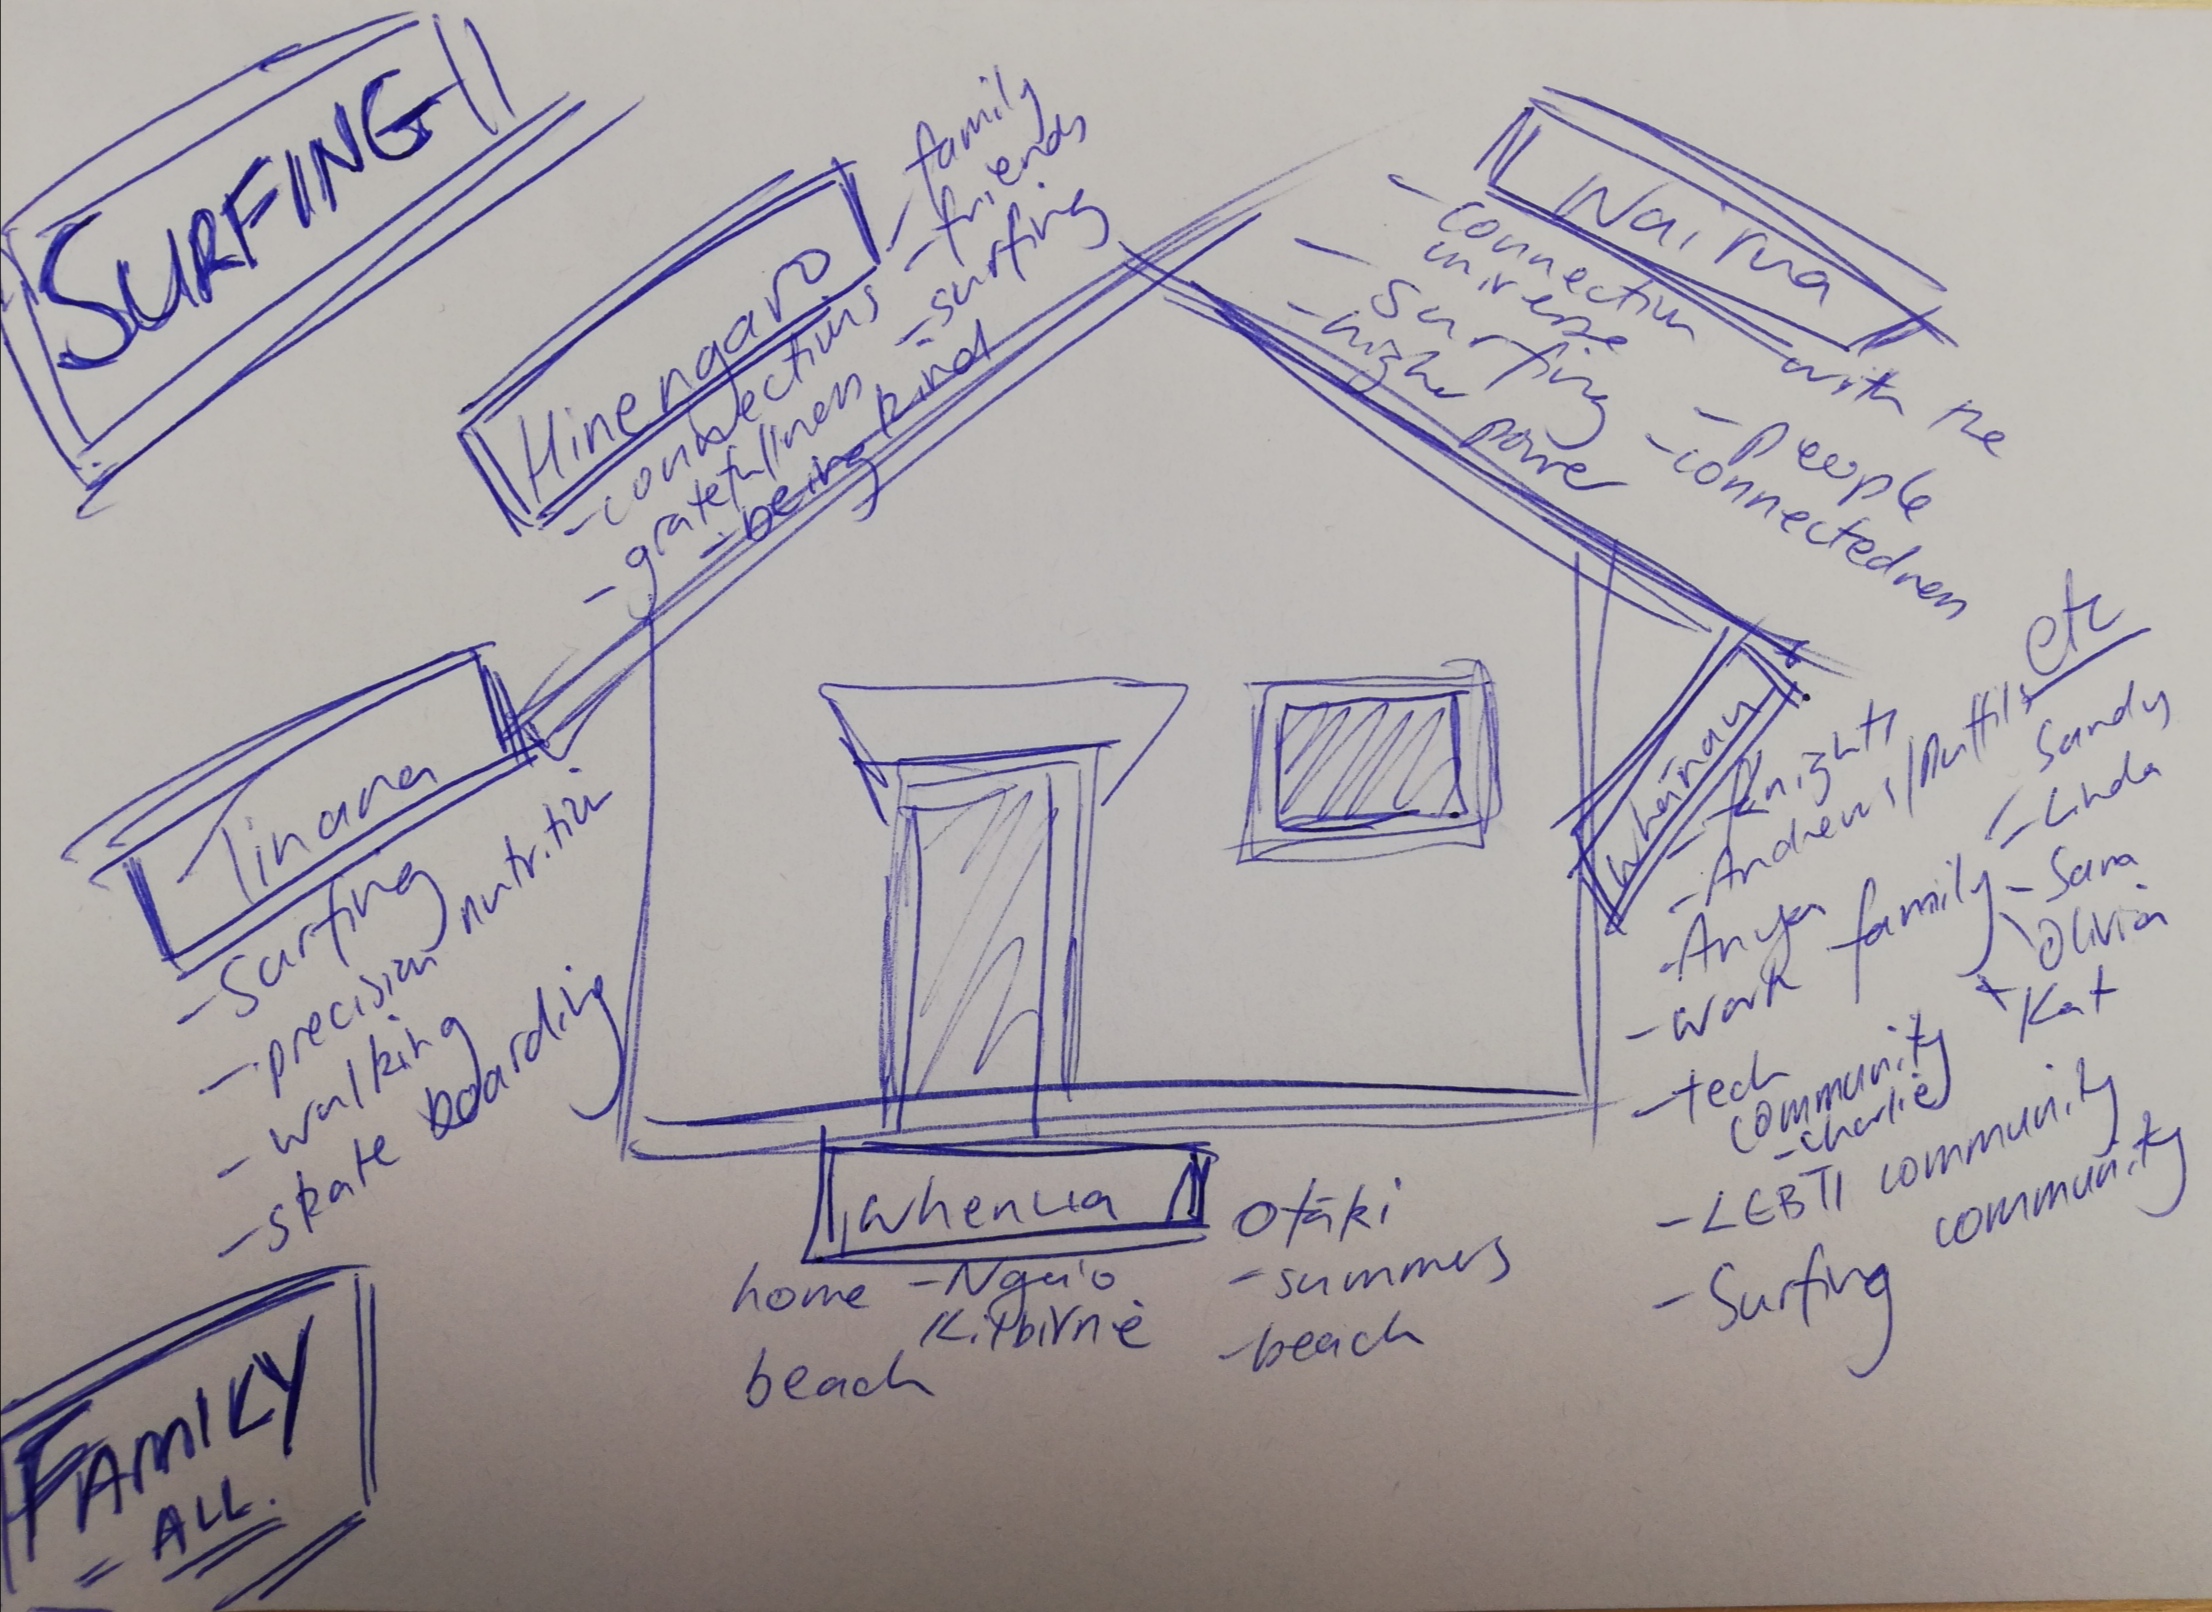 SURFING
Hinengaro
- family
- friends
- surfing
- connections
- gratefullness
- being kind
Wairua
- connection with the
universe
- Surfing
- higher power
- people
- connectedness
Tinana
- Surfing
- precision nutrition
- walking
- skate boarding
whānau
- Knights
- Andrews/
etc
- Anya
- work family
- Sandy
- Linda
- Sara
Olivia
Kat
- tech
community
- charlie
- LGBTI community
- Surfing community
whenua
home - Ngaio
Kilbirnie
beach
Otaki
- summers
- beach
FAMILY
- ALL.